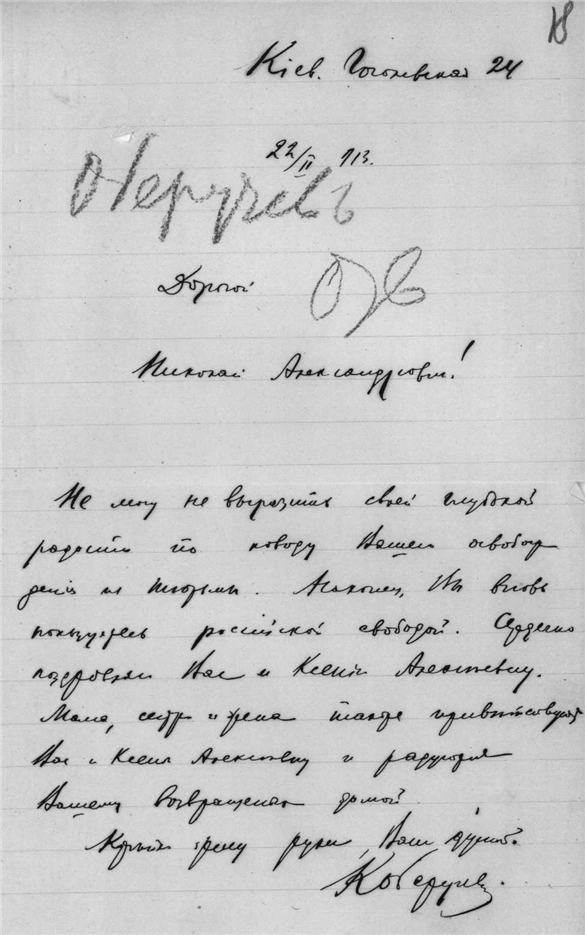 Кіев. Гоголевская 24
22/II 913.
Дорогой
Николай Александрович!
Не могу не выразить своей глубокой
радости по поводу Вашего освобож
денія из тюрьмы. Наконец, Вы вновь
пользуетесь россійской свободой. Сердечно
поздравляю Вас и Ксенію Алексеевну.
Мама, сестра и жена также привѣтствуют
Вас и Ксенію Алексеевну и радуются
Вашему возвращенію домой.
Крепко жму руки, Ваш